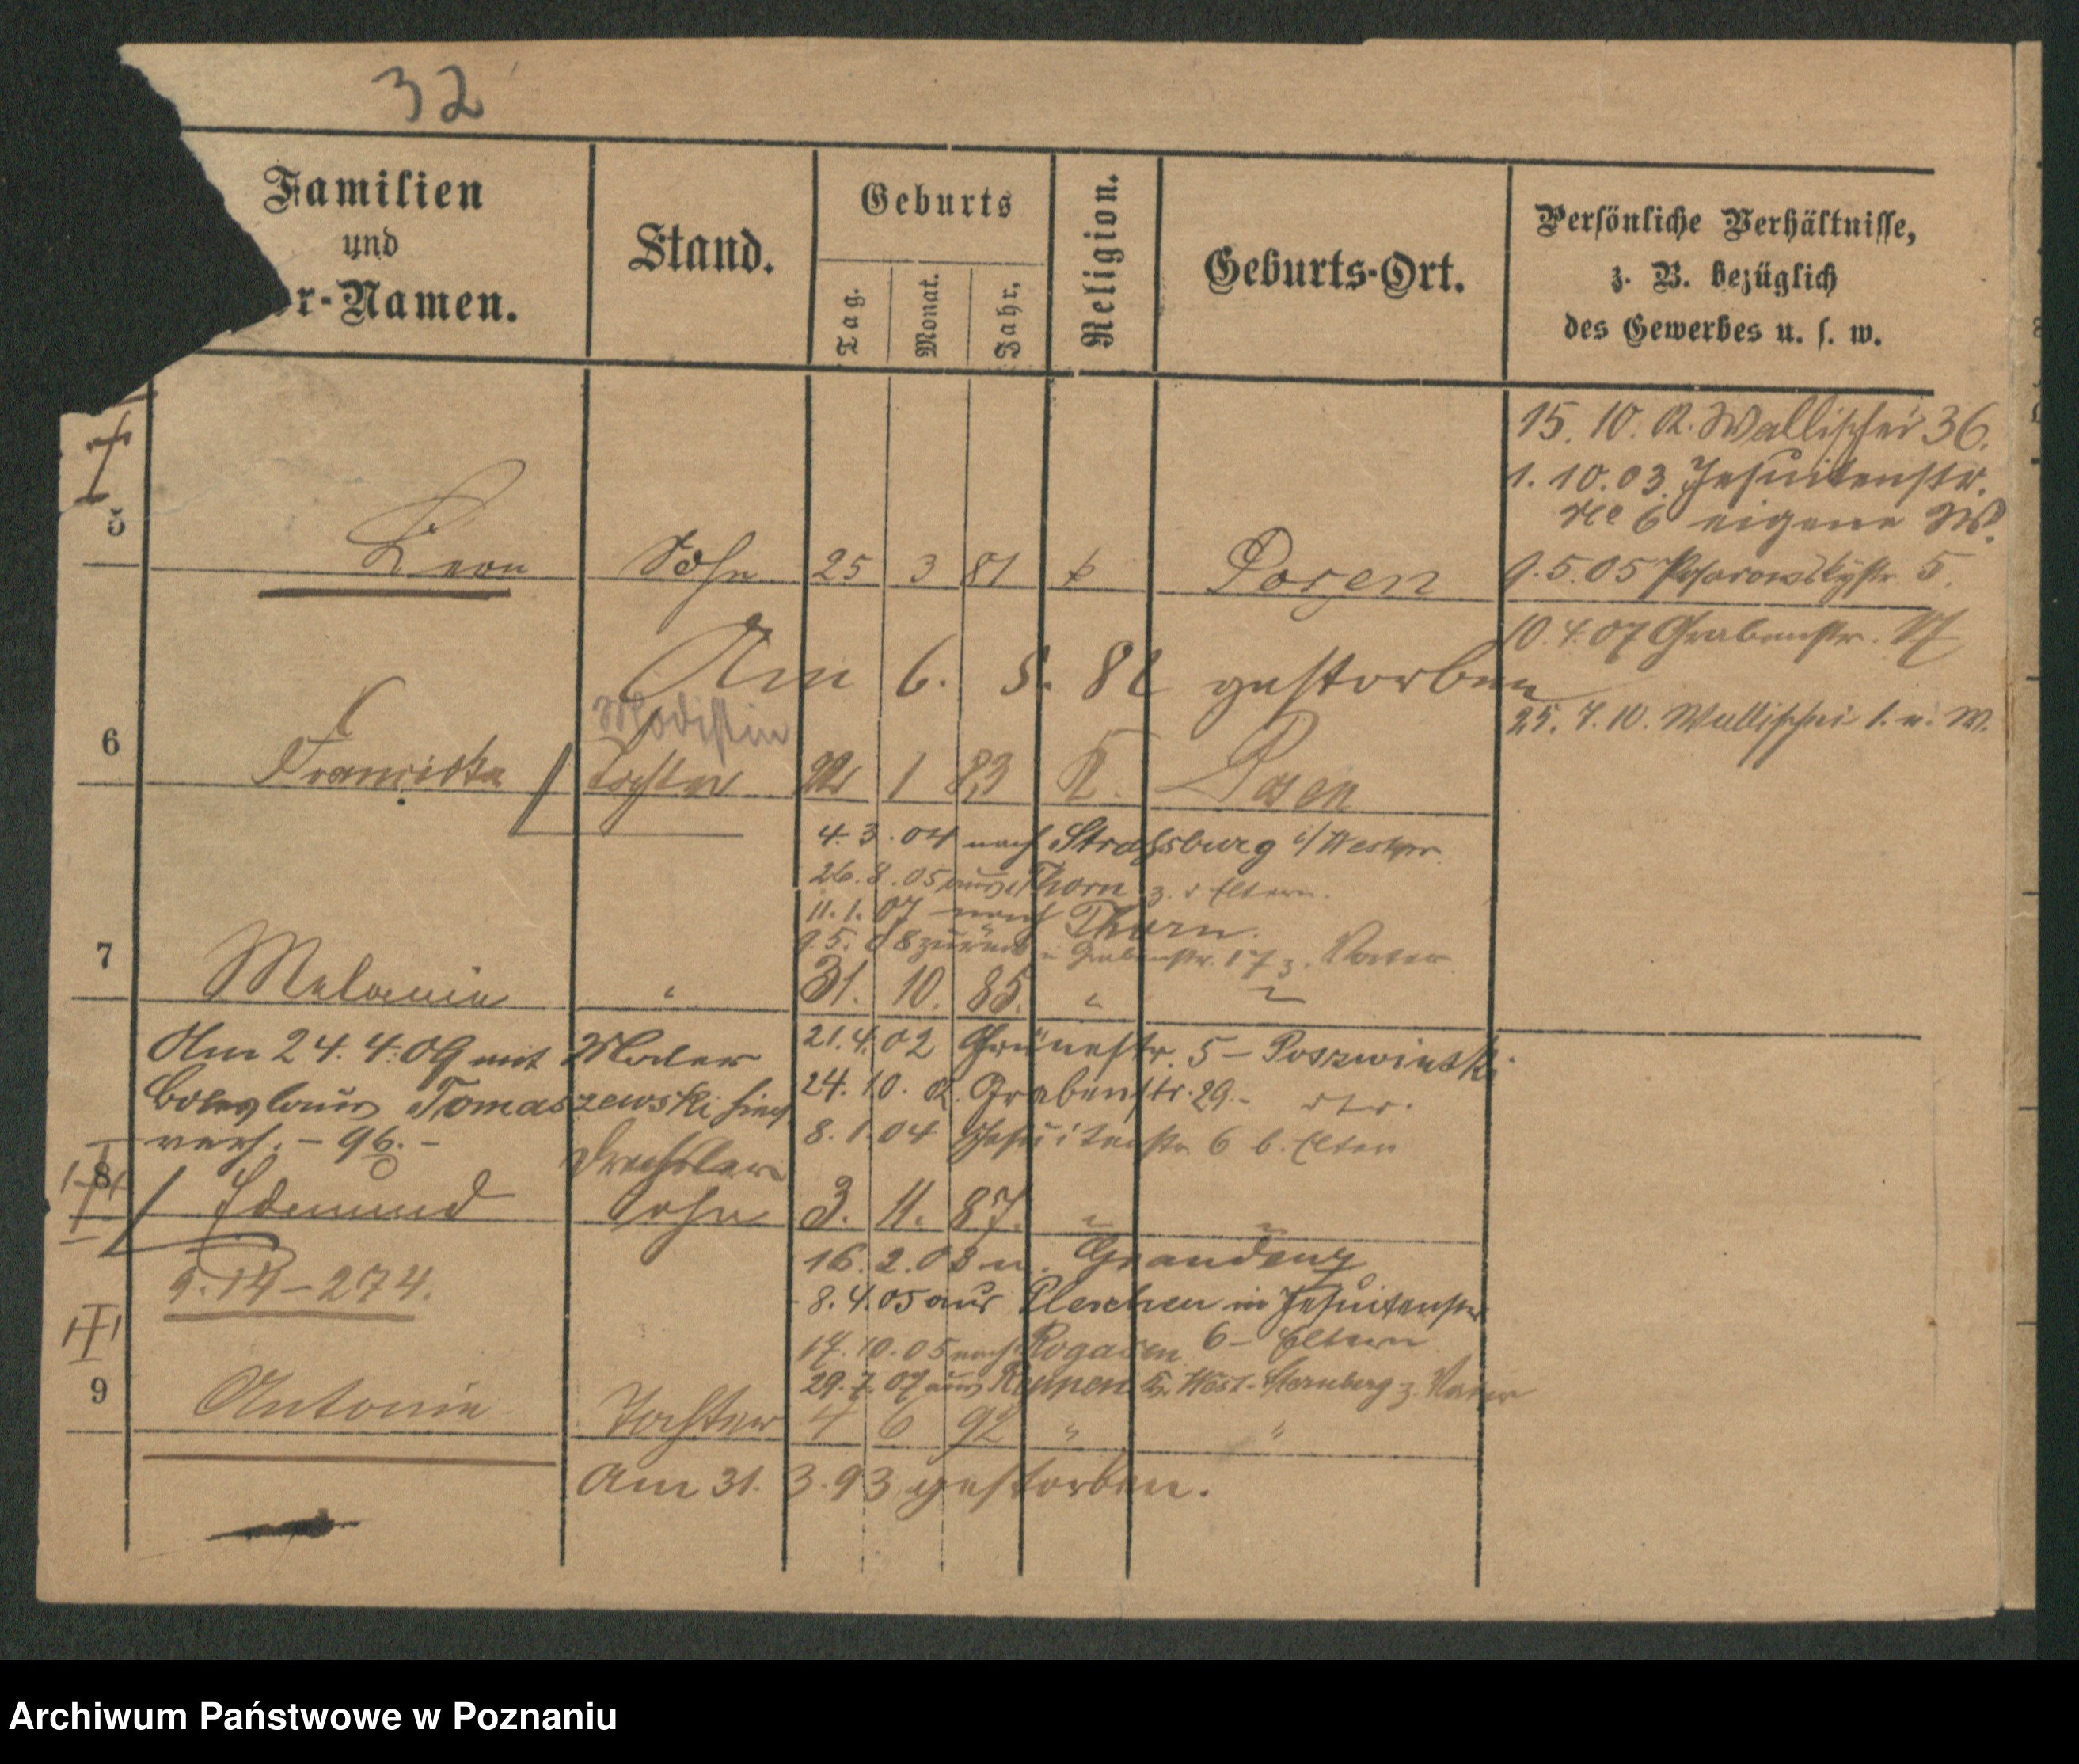 32
Familien
und
r-Namen.
Stand.
Geburts
Tag.
Monat.
Jahr.
Religion.
Geburts-Ort.
Persönliche Verhältnisse,
z. B. bezüglich
des Gewerbes u. s. w.
15. 10. 02. Wallischei 36.
1. 10. 03. Jesuitenstr.
No 6 eigene W.
9. 5. 05 Posadowskystr. 5.
10. 4. 07 Grabenstr. 17
25. 7. 10. Wallischei 1. e. W.
5 Leon Sohn 25 3 81 k Posen
Am 6. 8. 81 gestorben
Modistin
6 Franciska Tochter 22 1 83 K. Posen
4. 3. 04 nach Strassburg i/Westpr.
26. 8. 05 aus Thorn z. d. Eltern.
11. 1. 07 nach Thorn.
9. 5. 08 zurück Grabenstr. 17 z. Vater
7 Melanie " 31. 10. 85. " "
Am 24. 4. 09 mit Maler
Boleslaus Tomaszewski hier
verh. - 96. -
21. 4. 02 Grünestr. 5 - Poszwinski
24. 10. 02. Grabenstr. 29. -
8. 1. 04 Jesuitenstr. 6 b. Eltern
Drechsler
8 Edmund Sohn 3. 11. 87. " "
9. 14 - 274.
16. 2. 03 n. Graudenz
8. 4. 05 aus Pleschen in Jesuitenstr
17. 10. 05 nach Rogasen 6 - Eltern
29. 7. 07 aus Reppen Kr. West-Sternberg z. Vater
9 Antonie Tochter 4 6 92 " "
Am 31. 3. 93 gestorben.
Archiwum Państwowe w Poznaniu